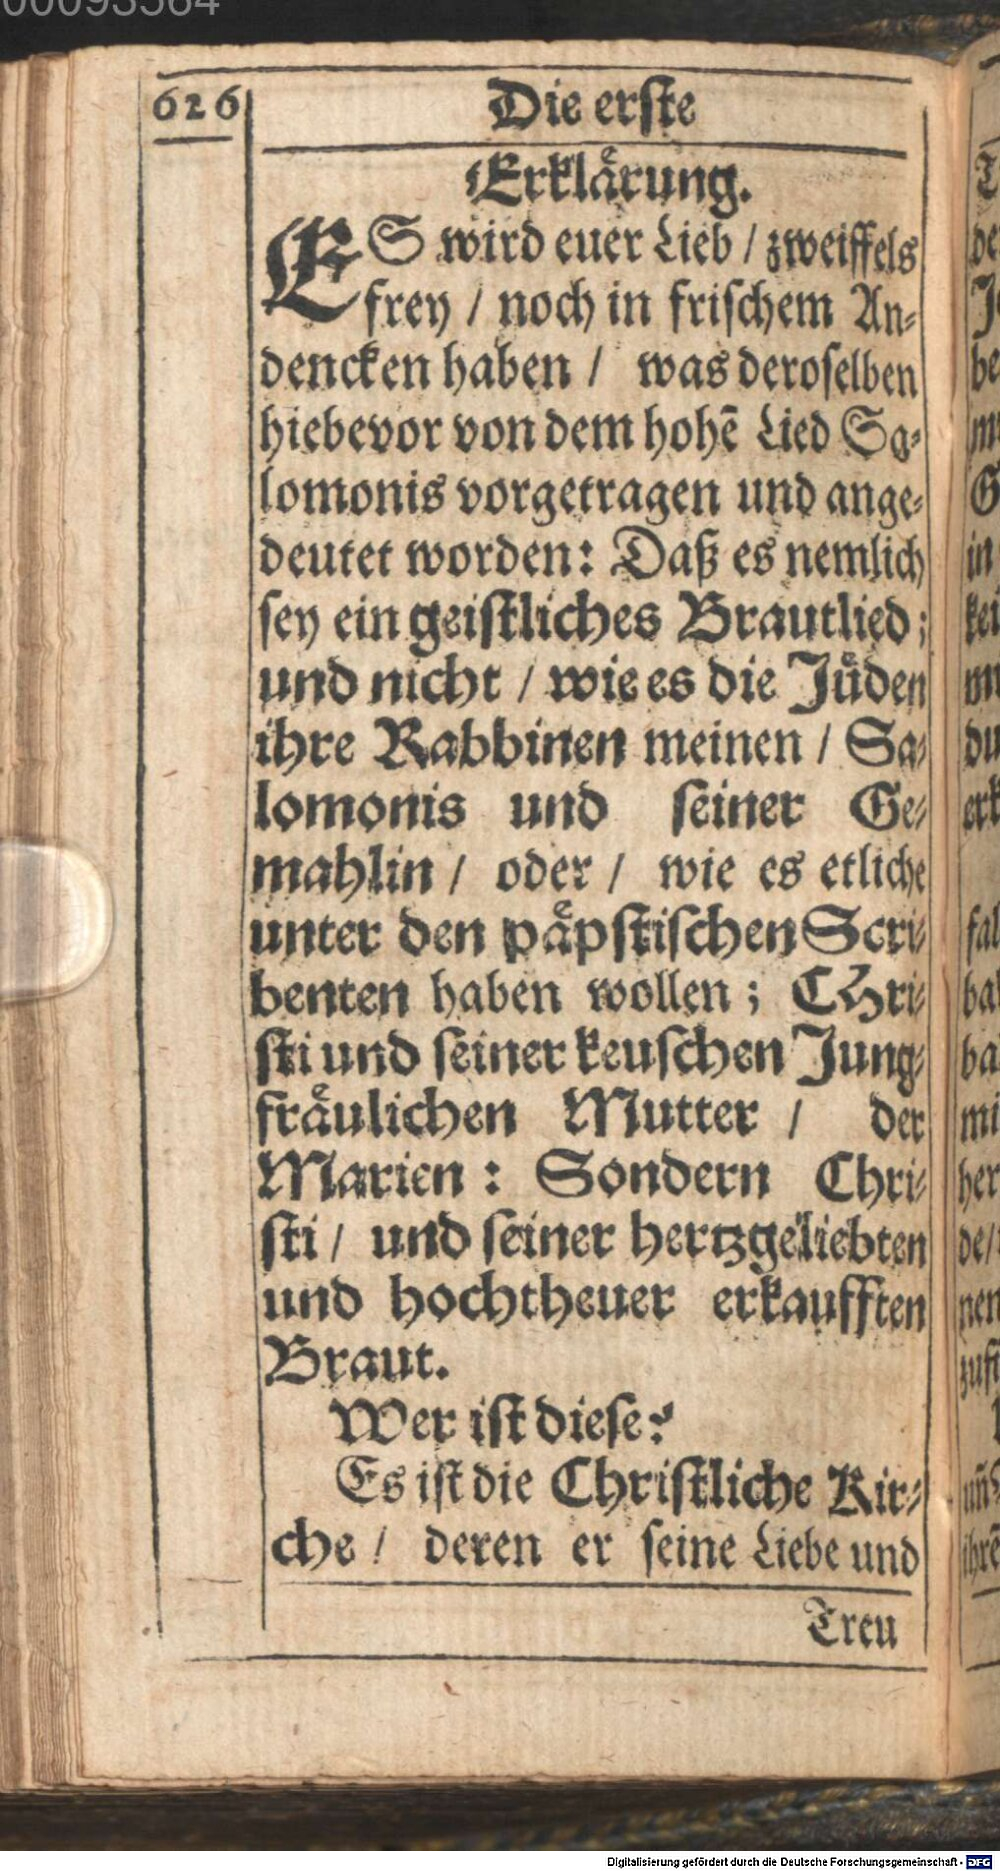 00093564
626
Die erste
Erklaͤrung.
ES wird euer Lieb / zweiffels
frey / noch in frischem An-
dencken haben / was deroselben
hiebevor von dem hohē Lied Sa-
lomonis vorgetragen und ange-
deutet worden: Daß es nemlich
sey ein geistliches Brautlied;
und nicht / wie es die Juͤden
ihre Rabbinen meinen / Sa-
lomonis und seiner Ge-
mahlin / oder / wie es etliche
unter den paͤpstischen Scri-
benten haben wollen; CHri-
sti und seiner keuschen Jung-
fraͤulichen Mutter / der
Marien: Sondern Chri-
sti / und seiner hertzgeliebten
und hochtheuer erkaufften
Braut.
Wer ist diese?
Es ist die Christliche Kir-
che / deren er seine Liebe und
Treu
Digitalisierung gefördert durch die Deutsche Forschungsgemeinschaft - DFG